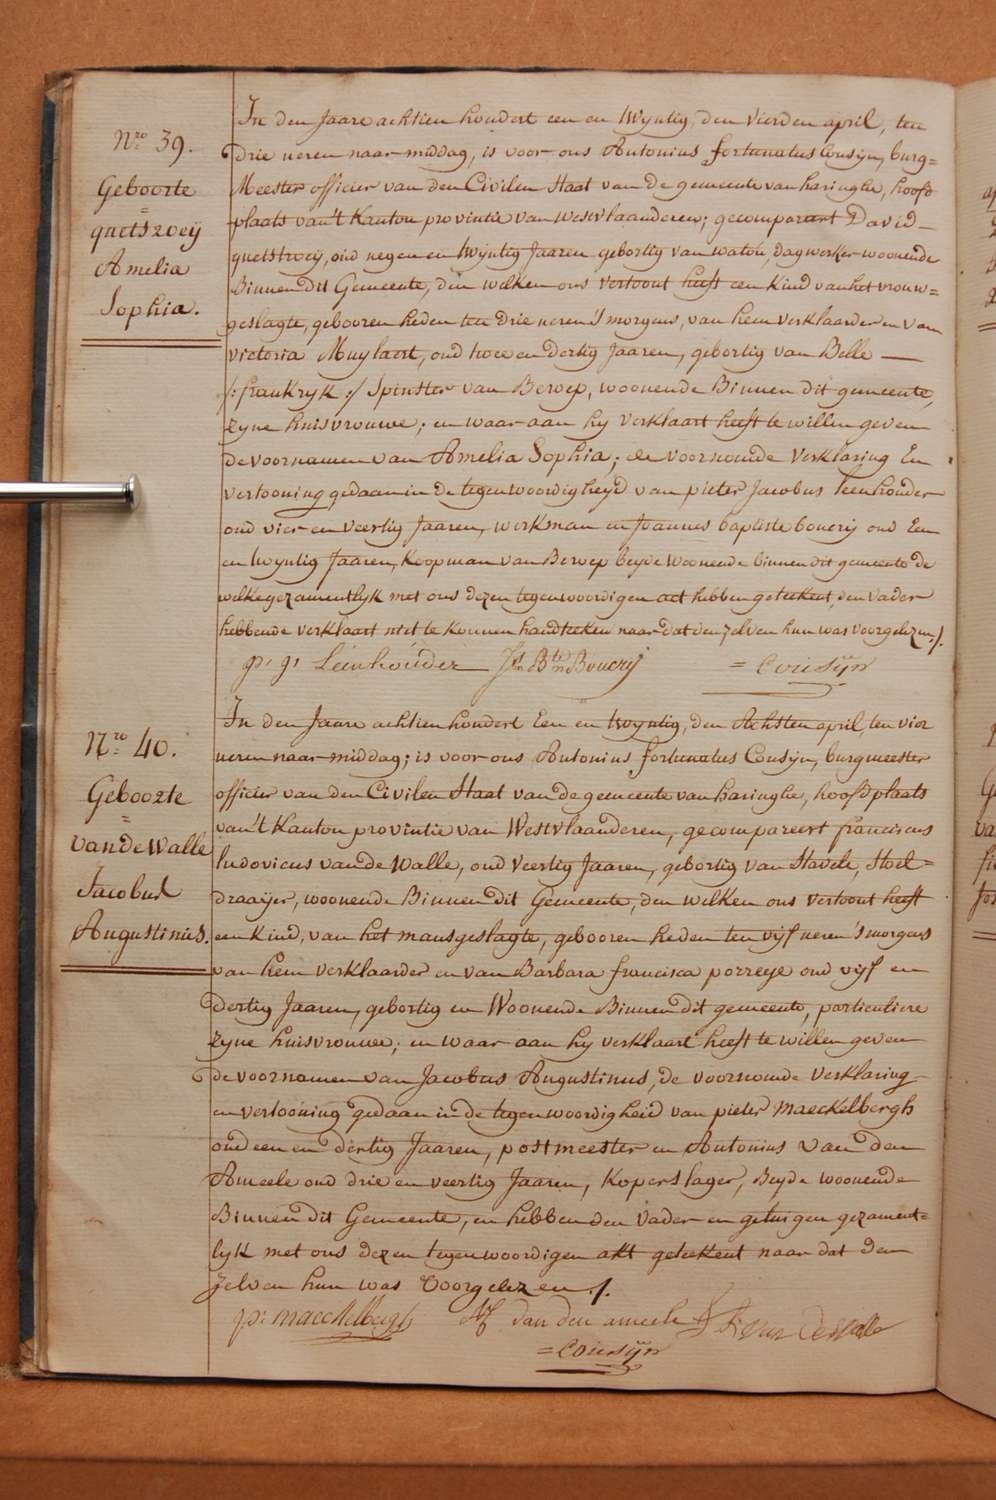 Nro 39.
Geboorte
=
quetstroeij
Amelia
Sophia.
In den Jaare achtien hondert een en twyntig, den vierden april, ten
drie ueren naar middag, is voor ons Antonius fortunatus Cousijn, burg=
Meester officier van den Civilen Staat van de gemeente van haringhe, hoofd
plaats van't Kanton provintie van westvlaanderen; gecompareert David
quetstroeij, oud negen en twyntig Jaaren gebortig van watou, dagwerker woonende
Binnen dit Gemeente, den welken ons vertoont heeft een kind van het vrouw=
geslagte, gebooren heden ten drie ueren 's morgens, van hem verklaarder en van
victoria Muylaert, oud twee en dertig Jaaren, gebortig van Belle —
/: frankryk :/ Spinster van Beroep, woonende Binnen dit gemeente,
zyne huisvrouwe; en waar aan hy verklaart heeft te willen geven
de voornamen van Amelia Sophia; de voornoemde verklaring En
vertooning gedaan in de tegenwoordigheyd van pieter Jacobus leenhouder
oud vier en veertig Jaaren, werkman en Joannes baptiste bouerij oud Een
en twyntig Jaaren, Koopman van Beroep beyde woonende binnen dit gemeente de
welke gezamentlyk met ons dezen tegenwoordigen act hebben geteekent, den vader
hebbende verklaart niet te konnen handteeken naar dat den zelven hun was voorgelezen ./.
p: j: Leenhouder Js Bte Bouerij = Cousijn
Nro 40.
Geboorte
=
van de Walle
Jacobus
Augustinus.
In den Jaare achtien hondert Een en twyntig, den Achsten april, ten vier
ueren naar middag; is voor ons Antonius fortunatus Cousijn, burgmeester
officier van den Civilen Staat van de gemeente van haringhe, hoofdplaats
van't Kanton provintie van Westvlaanderen, gecompareert franciscus
ludovicus van de Walle, oud veertig Jaaren, gebortig van Stavele, Stoel=
draaijer, woonende Binnen dit Gemeente, den welken ons vertoont heeft
een Kind, van het mansgeslagte, gebooren heden ten vijf ueren 's morgens
van hem verklaarder en van Barbara francisca porreye oud vijf en
dertig Jaaren, gebortig en Woonende Binnen dit gemeente, particuliere
zyne huisvrouwe; en waar aan hy verklaart heeft te willen geven
de voornamen van Jacobus Augustinus, de voornoemde verklaring
en vertooning gedaan in de tegenwoordigheid van pieter maeckelbergh
oud een en dertig Jaaren, postmeester en Antonius van den
Ameele oud drie en veertig Jaaren, Koperslager, Beyde woonende
Binnen dit Gemeente, en hebben den vader en getuigen gezament=
lyk met ons dezen tegenwoordigen akt geteekent naar dat den
zelven hun was voorgelezen ./.
p: maeckelbergh van den ameele van de walle
= Cousijn